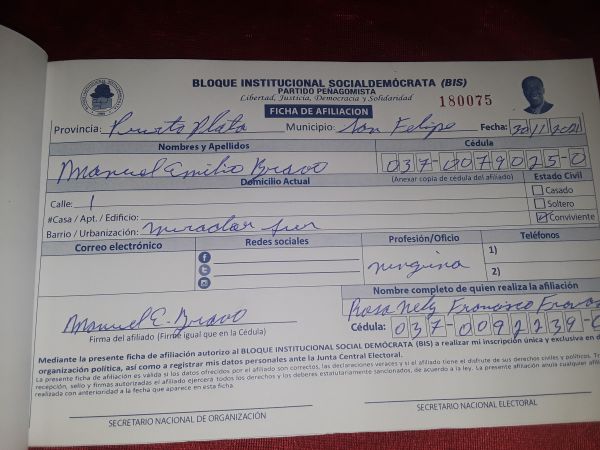 BLOQUE INSTITUCIONAL SOCIALDEMÓCRATA (BIS)
PARTIDO PEÑAGOMISTA
Libertad, Justicia, Democracia y Solidaridad
180075
FICHA DE AFILIACION
Provincia: Puerto Plata Municipio: San Felipe Fecha: 30/11/2021
Nombres y Apellidos Cédula
Manuel Emilio Bravo 037-0079025-0
(Anexar copia de cédula del afiliado)
Domicilio Actual Estado Civil
Calle: 1 Casado
#Casa / Apt. / Edificio: Soltero
Barrio / Urbanización: mirador sur Conviviente
Correo electrónico Redes sociales Profesión/Oficio Teléfonos
ninguna 1)
2)
Nombre completo de quien realiza la afiliación
Rosa Nely Francisco
Manuel E. Bravo Cédula: 037-0092239-
Firma del afiliado (Firme igual que en la Cédula)
Mediante la presente ficha de afiliación autorizo al BLOQUE INSTITUCIONAL SOCIAL DEMÓCRATA (BIS) a realizar mi inscripción única y exclusiva en
organización política, así como a registrar mis datos personales ante la Junta Central Electoral.
La presente ficha de afiliación es valida si los datos ofrecidos por el afiliado son correctos, las declaraciones veraces y si el afiliado tiene el disfrute de sus derechos civiles y políticos.
recepción, sello y firmas autorizadas el afiliado ejercerá todos los derechos y los deberes estatutariamente sancionados, de acuerdo a la ley. La presente afiliación anula cualquier
realizada con anterioridad a la fecha que aparece en esta ficha.
SECRETARIO NACIONAL DE ORGANIZACIÓN SECRETARIO NACIONAL ELECTORAL